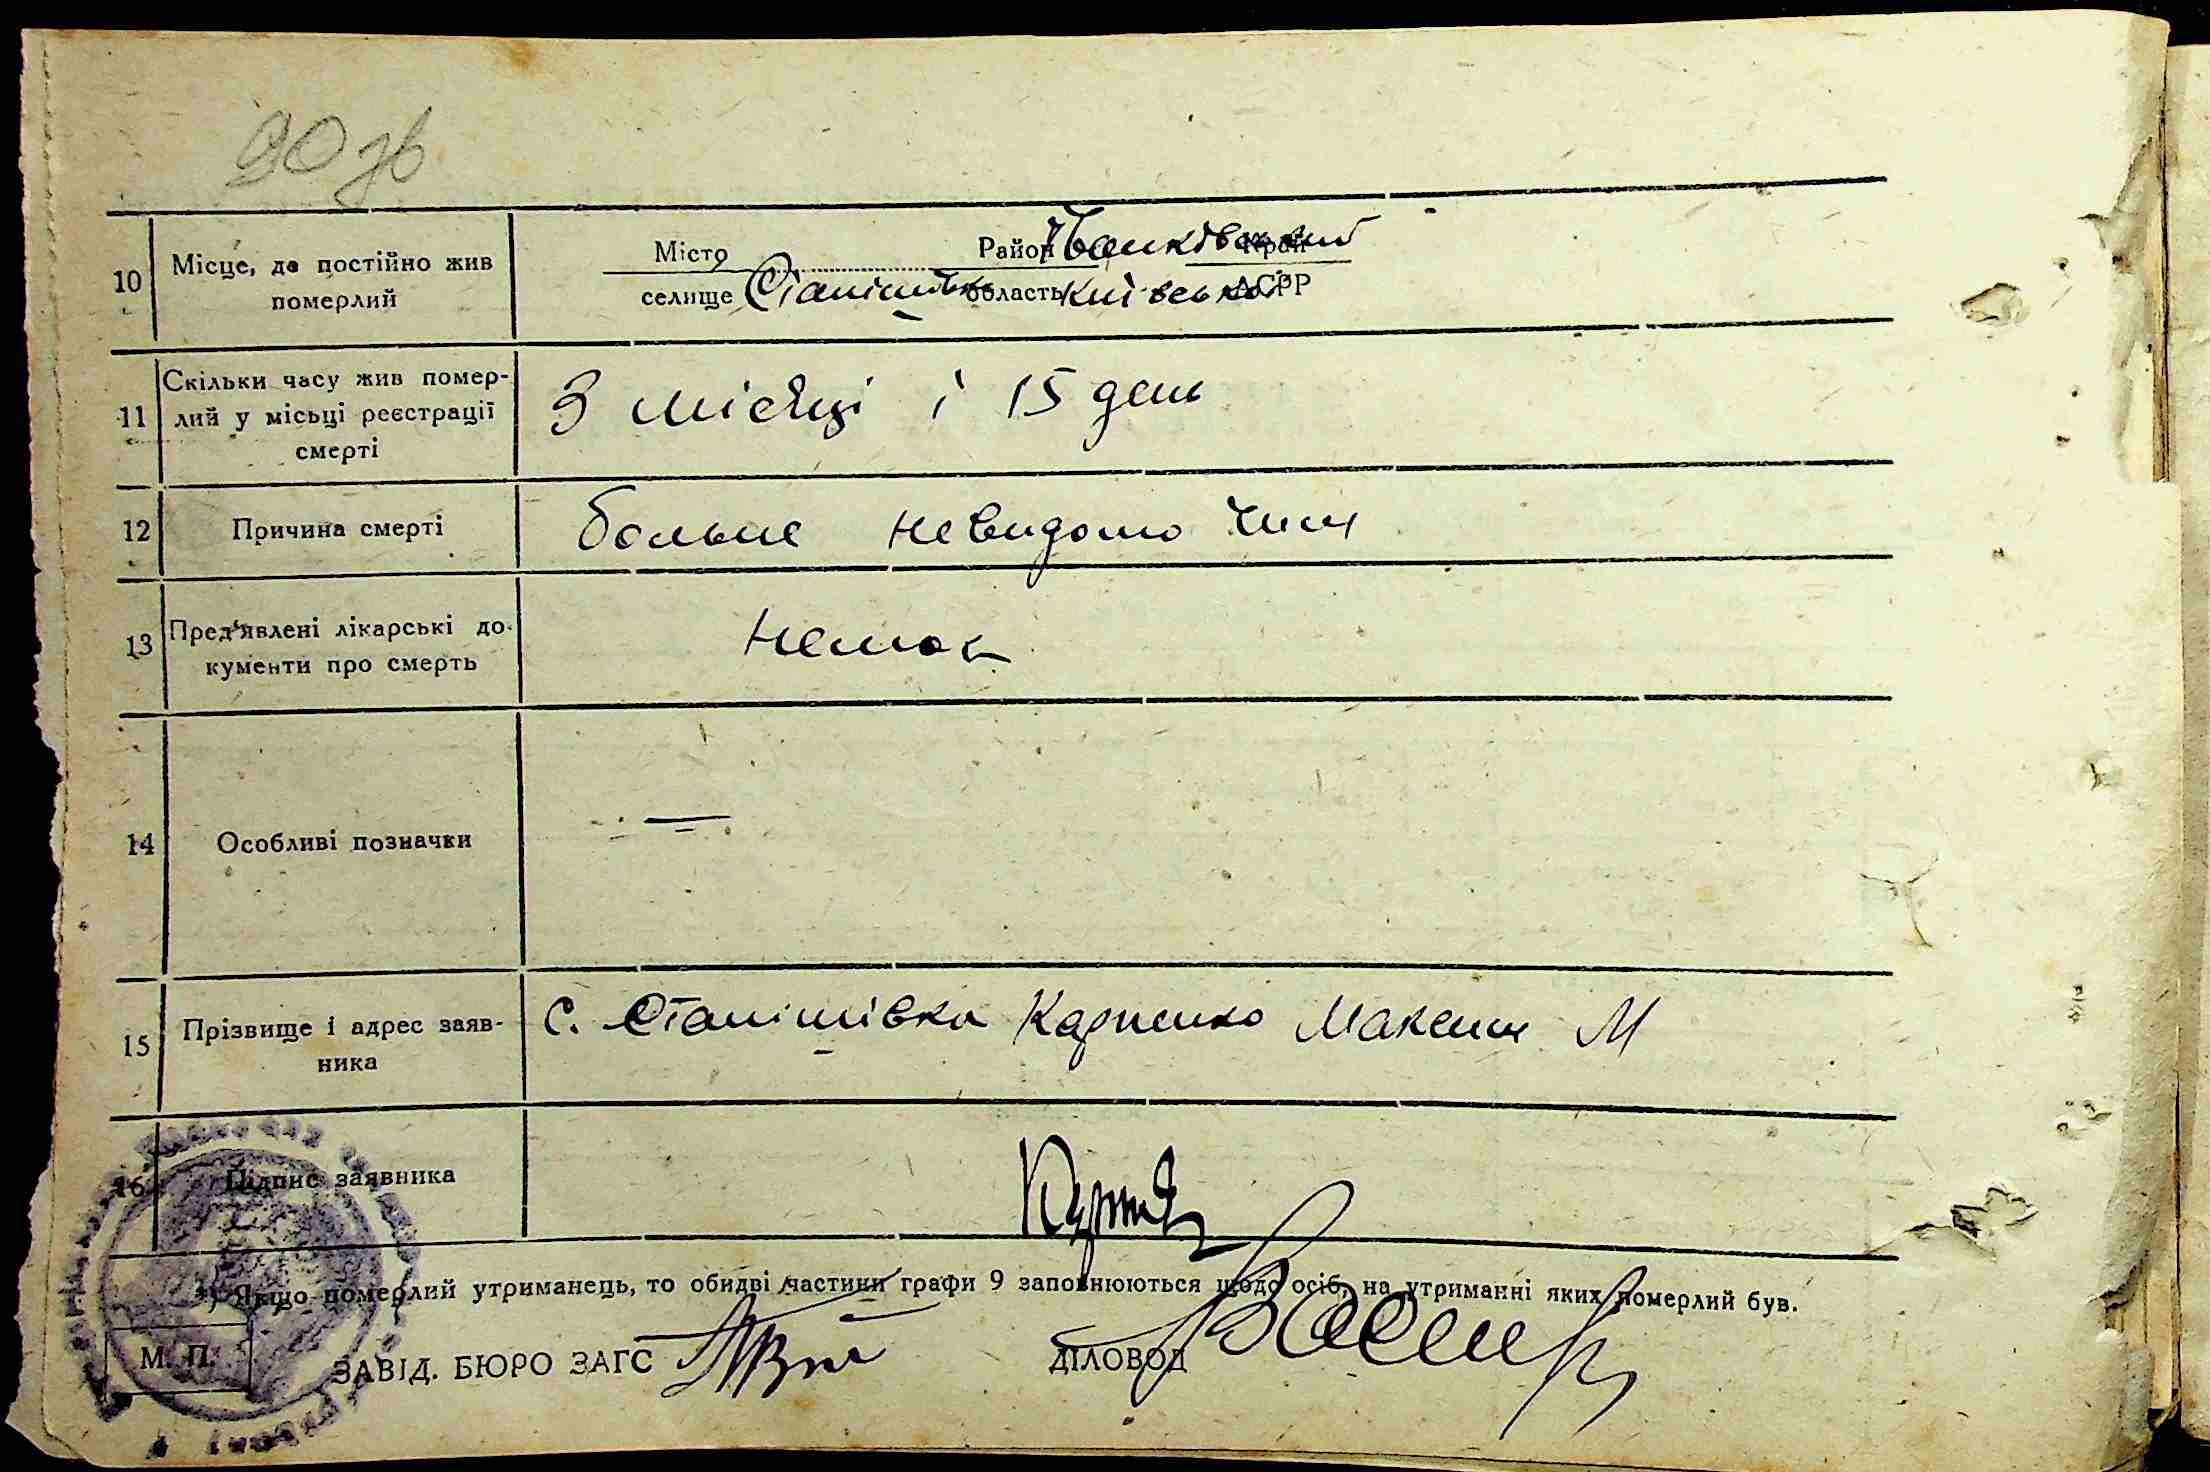 90 зв
10 Місце, де постійно жив померлий
Місто Район Іванківський Край
селище Станішівка область Київська АСРР
11 Скільки часу жив помер-
лий у місьці реєстрації
смерті
3 місяці і 15 день
12 Причина смерті больне невидомо чим
13 Пред'явлені лікарські до-
кументи про смерть
немає
14 Особливі позначки —
15 Прізвище і адрес заяв-
ника
с. Станішівка Карпенко Максим М
16 Підпис заявника
*) Якщо померлий утриманець, то обидві частини графи 9 заповнюються щодо осіб, на утриманні яких померлий був.
М. П. ЗАВІД. БЮРО ЗАГС ДІЛОВОД